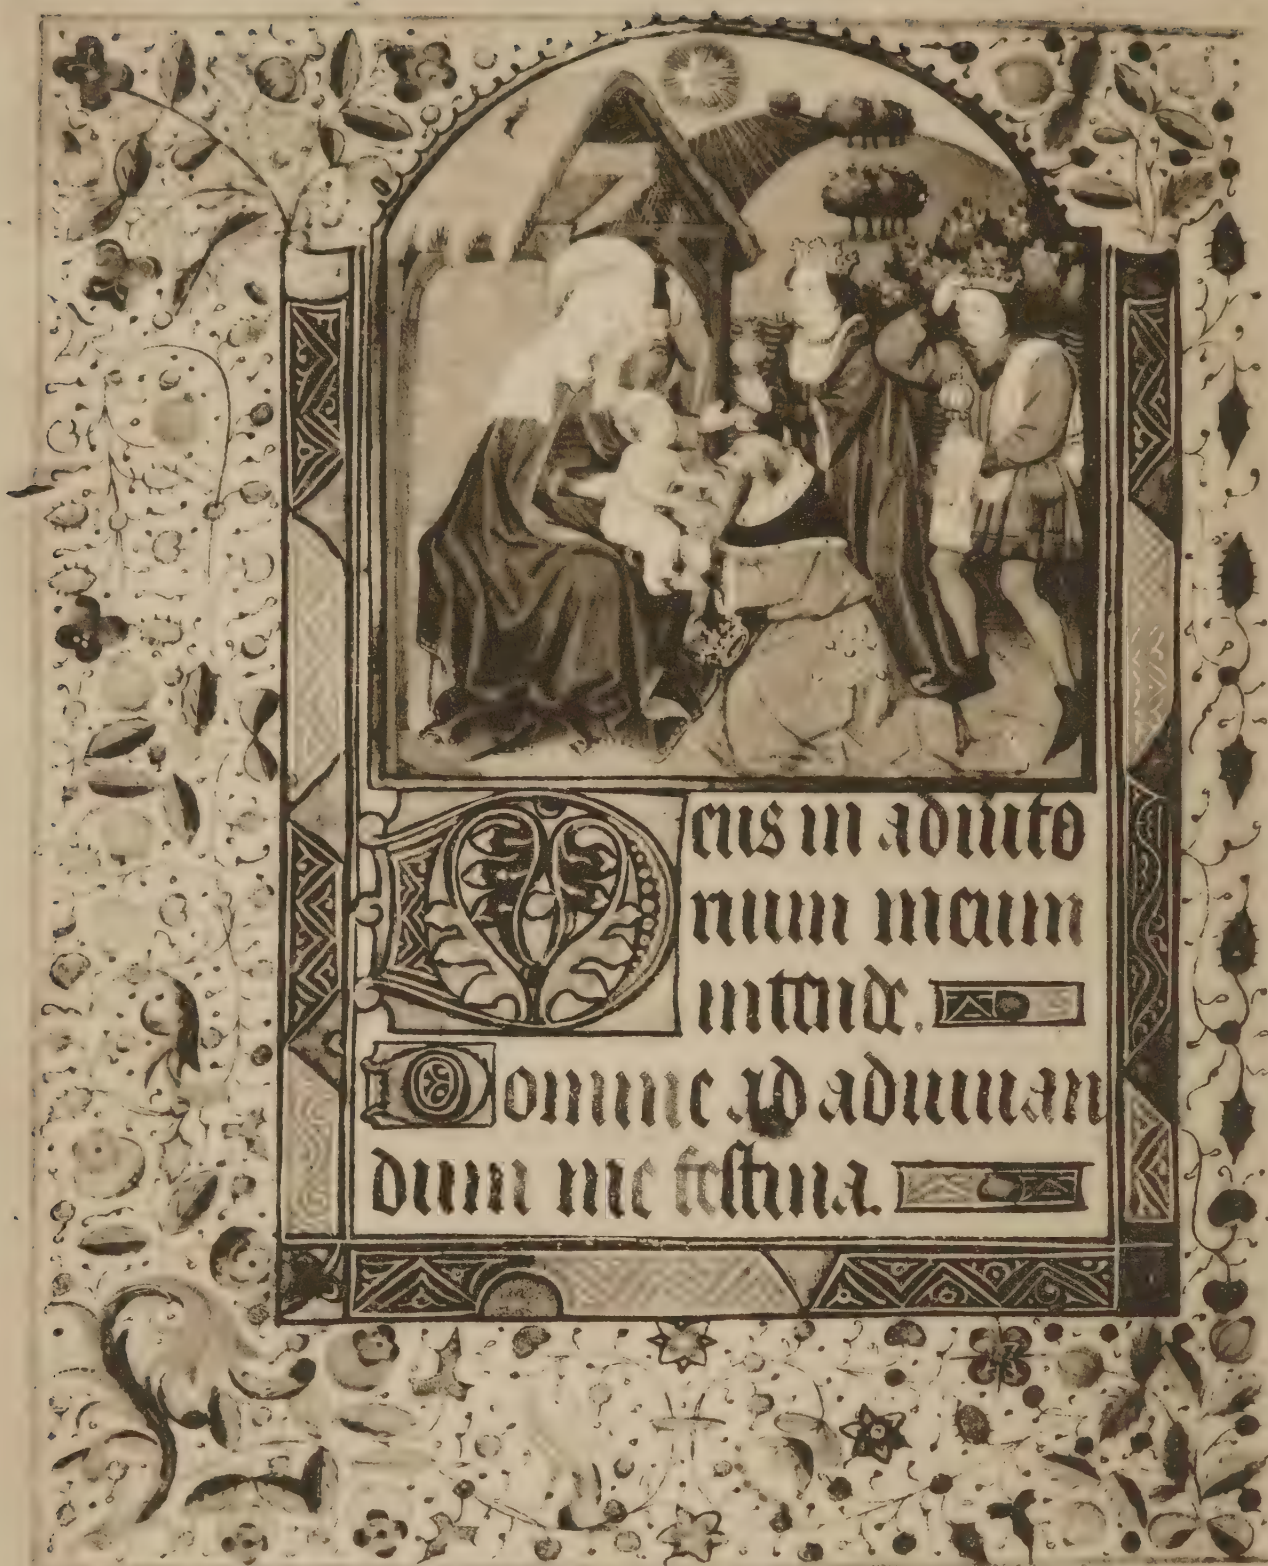 Deus in adiuto
rium meum
intende.
Domine ad adiuuan
dum me festina.